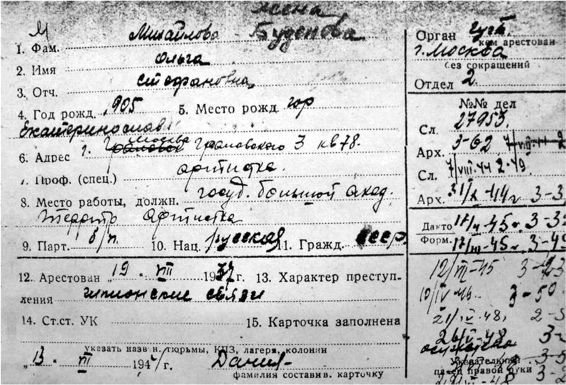 жена
М Михайлова Буденова
1. Фам.
2. Имя Ольга
3. Отч. Стефановна
4. Год рожд. 905 5. Место рожд. гор
Екатеринослав
6. Адрес г. Москва Грановского 3 кв 78.
7. Проф. (спец.) артистка
8. Место работы, должн. госуд. большой акад.
театр артистка
9. Парт. б/п 10. Нац. русская 11. Гражд. СССР
12. Арестован „19 VIII 1937 г. 13. Характер преступ-
ления шпионские связи
14. Ст.ст. УК 15. Карточка заполнена
указать назв и. тюрьмы, КПЗ, лагеря, колонии
„13. VII 194
фамилия составив. карточку
Орган
кем арестован
г. Москва
без сокращений
Отдел 2.
№№ дел
Сл. 27953
Арх. 3-62
Сл. VIII-44 2-49
Арх. 31/X-44 г 3-3
Дакто 17/X-45 3-3
Форм. 17/III-45 3-49
12/VII-45
10/IV-46. 3-50.
21/IV-48,
26/V-48. 3-
Указательный
палец правой руки